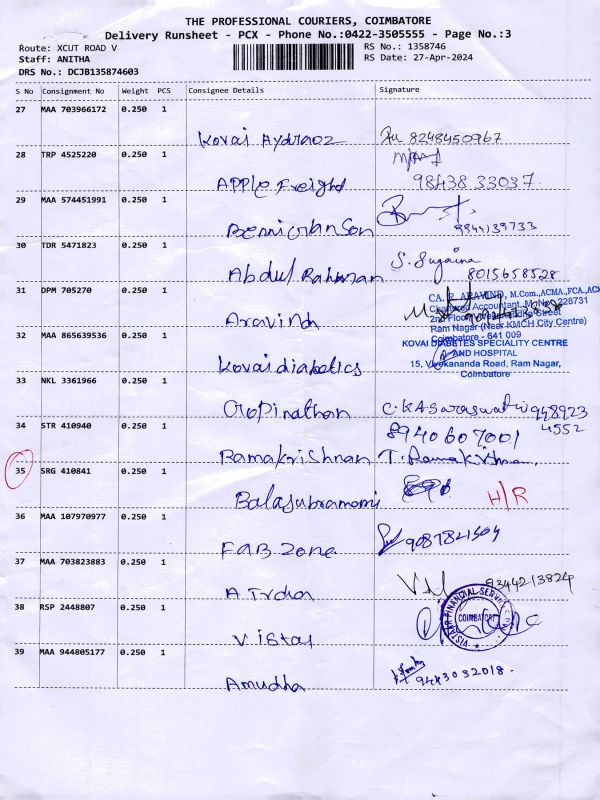 THE PROFESSIONAL COURIERS, COIMBATORE
Delivery Runsheet - PCX - Phone No.:0422-3505555 - Page No.:3
Route: XCUT ROAD V
RS No.: 1358746
Staff: ANITHA
RS Date: 27-Apr-2024
DRS No.: DCJB135874603
S No Consignment No Weight PCS Consignee Details Signature
27 MAA 703966172 0.250 1
Kovai 8248450967
28 TRP 4525220 0.250 1
APPle Freight 98438 33037
29 MAA 574451991 0.250 1
9944139733
30 TDR 5471823 0.250 1
S. Sugaina
Abdul Rahman 8015658528
31 DPM 705270 0.250 1
CA. R. ARAVIND, M.Com.,ACMA.,FCA.,
Chartered Accountant, M.No. 228731
Aravind
Ram Nagar (Near KMCH City Centre)
32 MAA 865639536 0.250 1
Coimbatore - 641 009
KOVAI DIABETES SPECIALITY CENTRE
AND HOSPITAL
Kovai diabetics
15, Vivekananda Road, Ram Nagar,
Coimbatore
33 NKL 3361966 0.250 1
Gopinathan C.K.A Saraswathi 948923
4552
34 STR 410940 0.250 1
8940607001
Ramakrishnan T. Ramakrishnan
35 SRG 410841 0.250 1
Balasubramani H/R
36 MAA 107970977 0.250 1
FAB Zone 9087821504
37 MAA 703823883 0.250 1
9344213824
38 RSP 2448807 0.250 1
COIMBATORE
Vistas
39 MAA 944805177 0.250 1
Amudha 9443032018